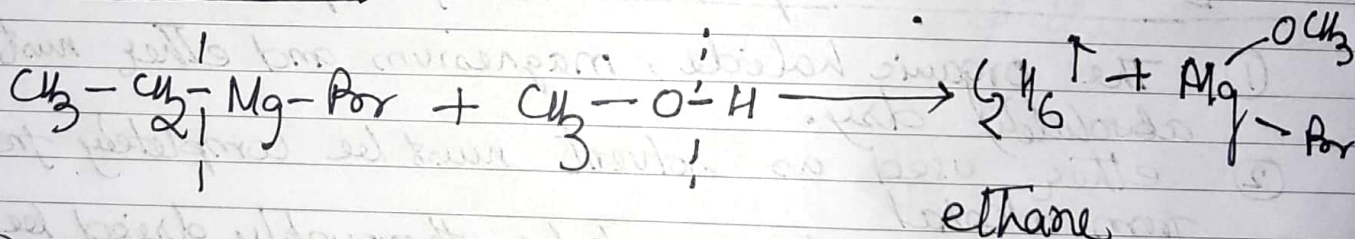 CH3 – CH2 – Mg – Br + CH3 – O – H ⟶ C2H6 ↑ + Mg – OCH3
– Br
ethane